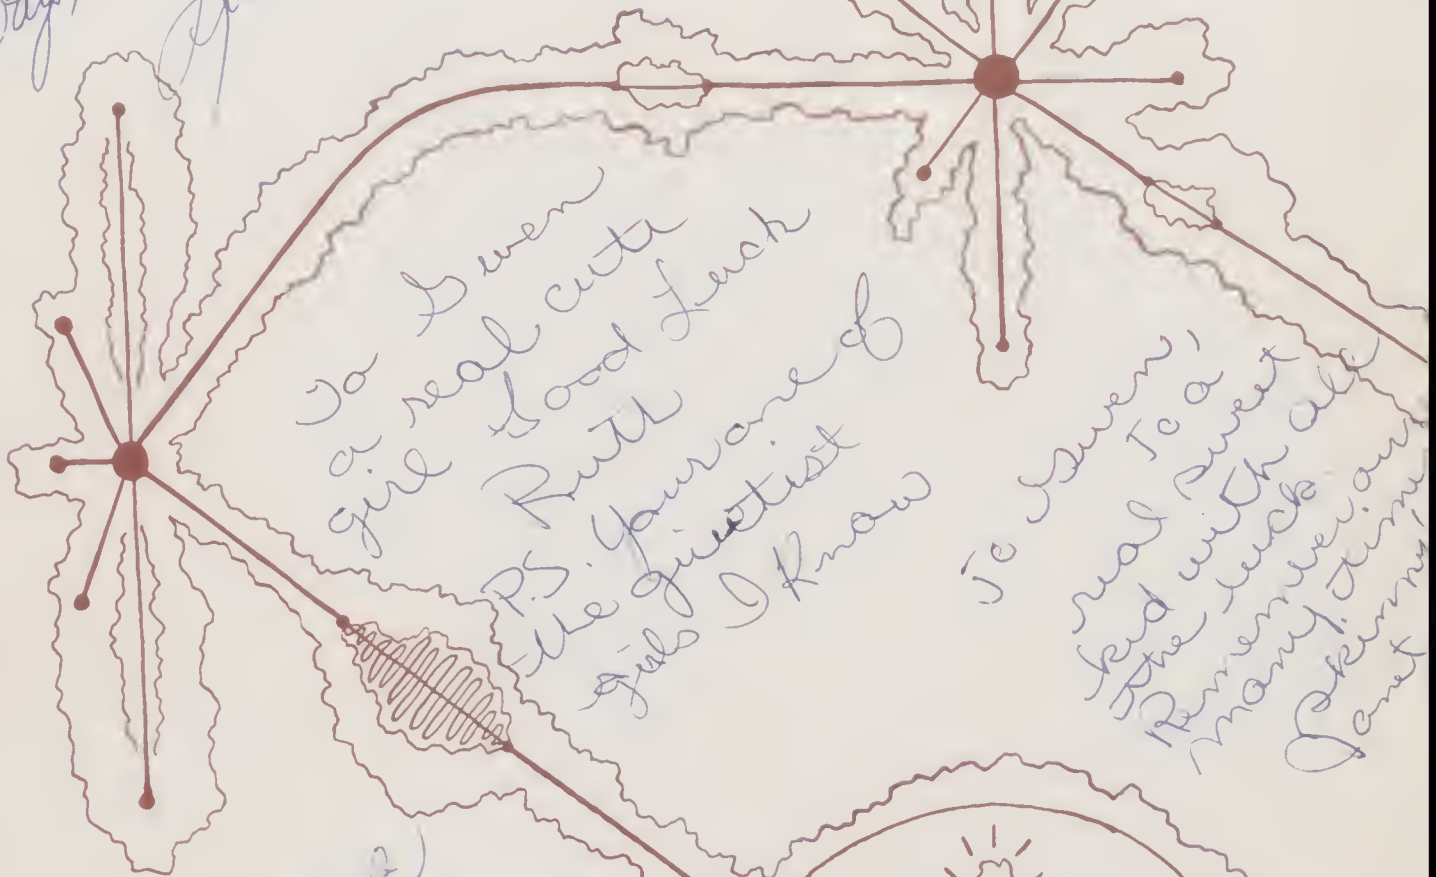 To Gwen
a real cute
girl Good Luck
Ruth
P.S. Your one of
the quietist
girls I Know
To Gwen,
To a
real sweet
kid with all
the luck
Remember our
many time
Skinny,
Janet